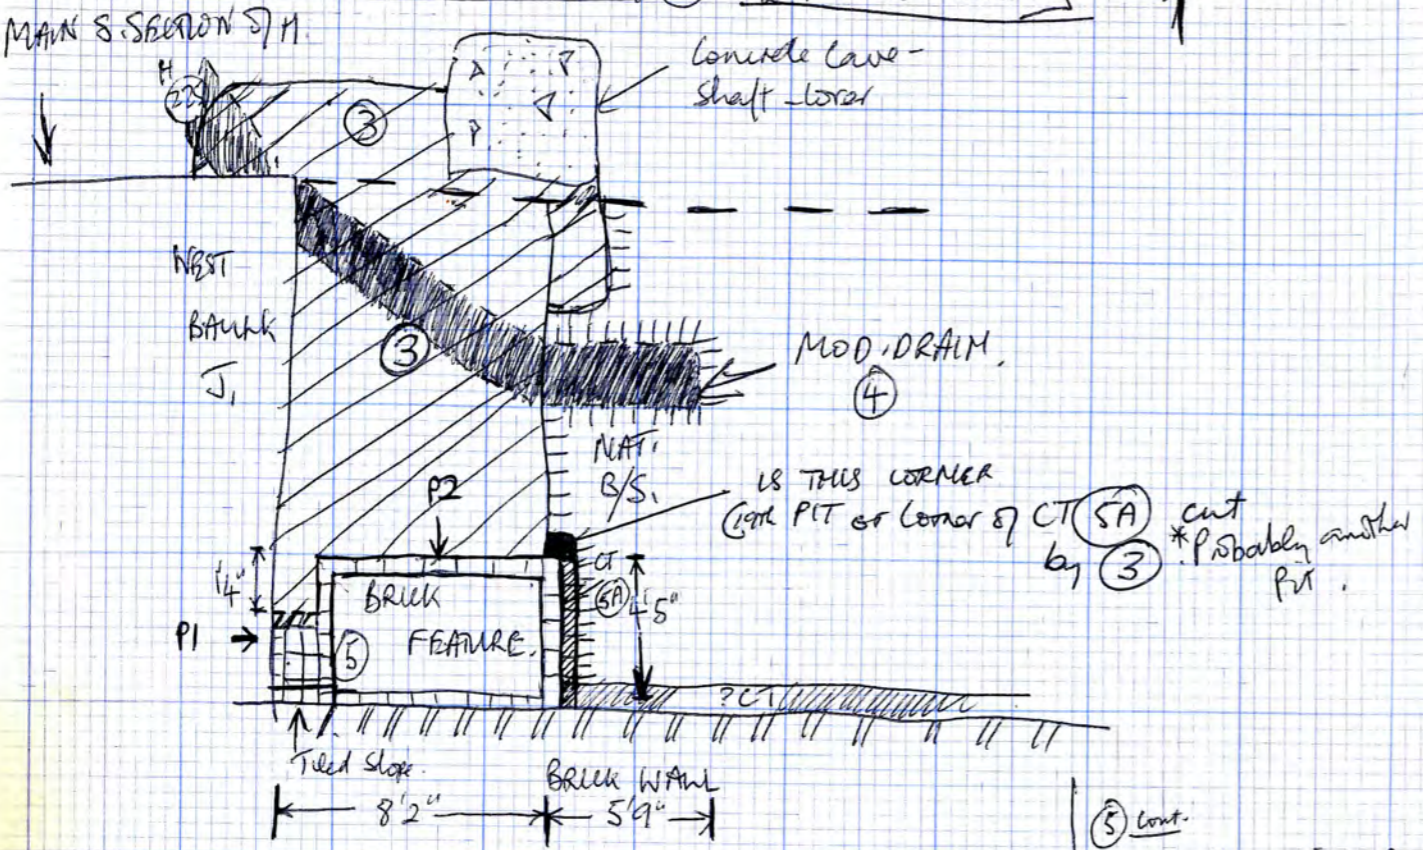 MAIN S. SECTION OF H.
H
3
Concrete Cave-
Shaft
WEST
BAULK
J1
3
MOD. DRAIN.
4
NAT.
B/S.
P2
IS THIS CORNER
19th PIT or Corner of CT 5A cut
by 3. * Probably another
Pit.
1'4"
CT
5A
4'5"
BRICK
FEATURE.
P1
5
?CT
Tiled Slope.
BRICK WALL
8'2"
5'9"
5 cont.